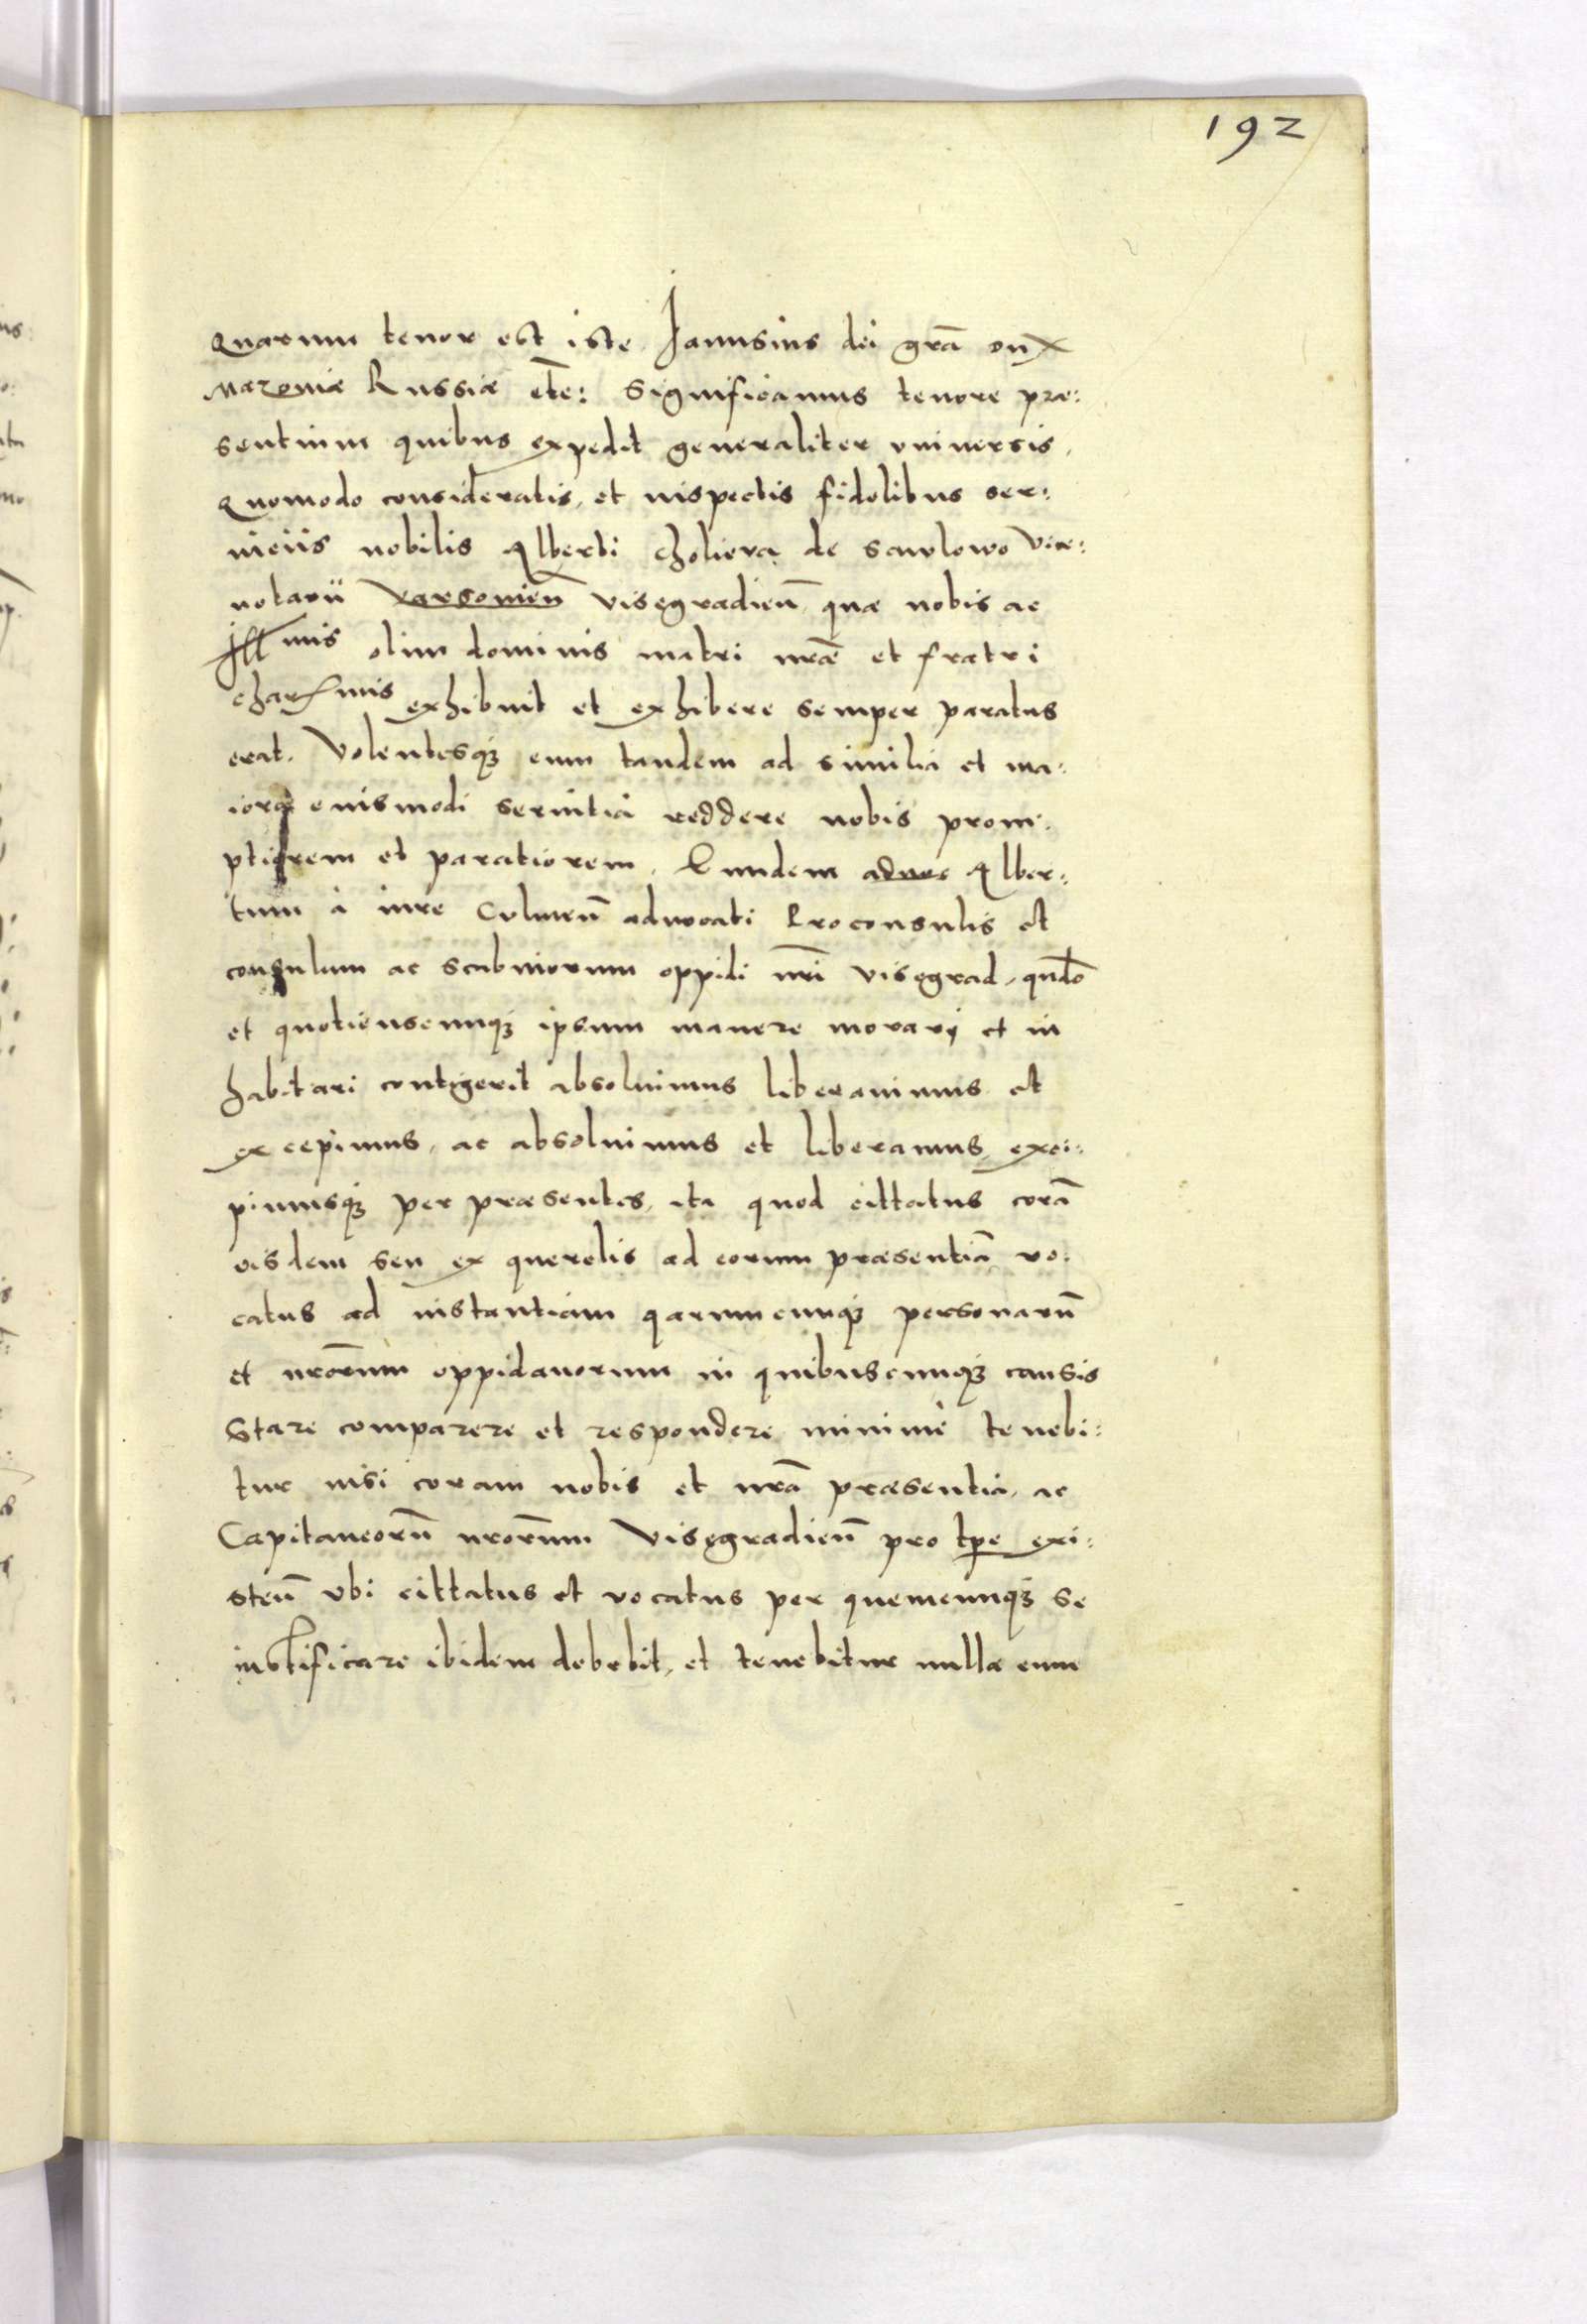 192
Quarum tenor est iste Janusius dei grã dux
Mazoviæ Russiæ etc: Significamus tenore præ:
sentium quibus expedit generaliter universis,
Quomodo consideratis, et inspectis fidelibus ser:
viciis nobilis Alberti Cholieva de Sawlowo Vice:
notarii Varsovieñ Visegradieñ, quæ nobis ac
Illmis olim dominis matri nræ et fratri
charissmis exhibuit et exhibere semper paratus
erat. Volentesqȝ eum tandem ad similia et ma:
iora euismodi servitia reddere nobis prom:
ptiorem et paratiorem. Eundem Alber:
tum à iure Culmeñ advocati Proconsulis et
consulum ac scabinorum oppidi nri Visegrad, qndo
et quotienscunqȝ ipsum manere morari et in
habitari contigerit absolvimus liberavimus et
excepimus, ac absolvimus et liberamus, exci:
pimusqȝ per præsentes, ita quod cittatus corã
eisdem seu ex querelis ad eorum præsentiã vo:
catus ad instantiam qarumcunqȝ personarũ
et nrorum oppidanorum in quibuscunqȝ causis
Stare comparere et respondere minimè tenebi:
tur nisi coram nobis et nrã præsentia, ac
Capitaneorũ nrorum Visegradieñ pro tpe exi:
steñ ubi cittatus et vocatus per quemcunqȝ se
iustificare ibidem debebit, et tenebitur nulla eum